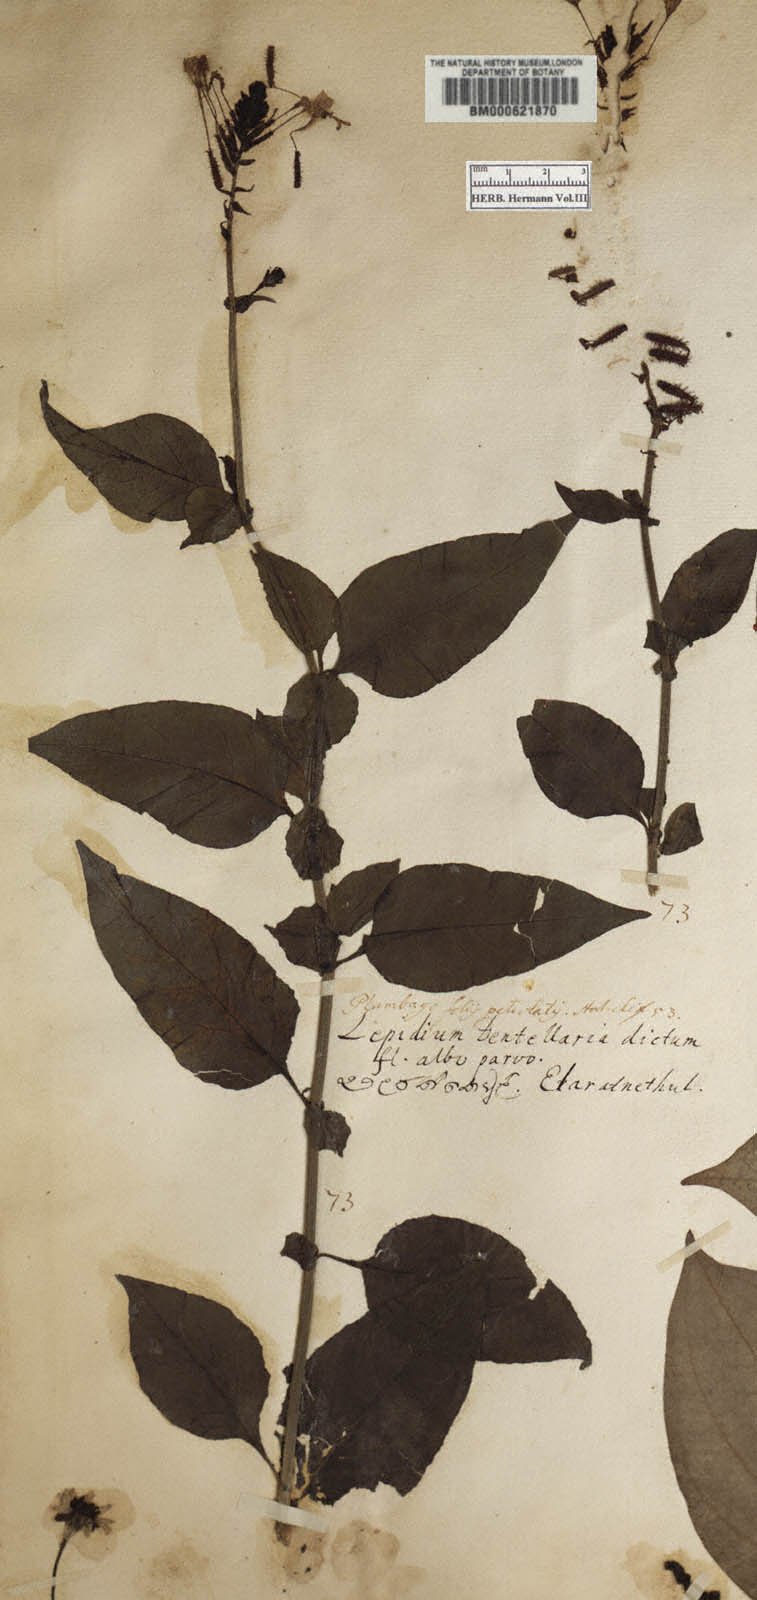 THE NATURAL HISTORY MUSEUM, LONDON
DEPARTMENT OF BOTANY
BM000621870
mm 1 2 3
HERB. Hermann Vol.III
73
Plumbago foliis petiolatis. 53.
Lepidium dentellaria dictum
fl. albo parvo.
Elaratnethul.
73